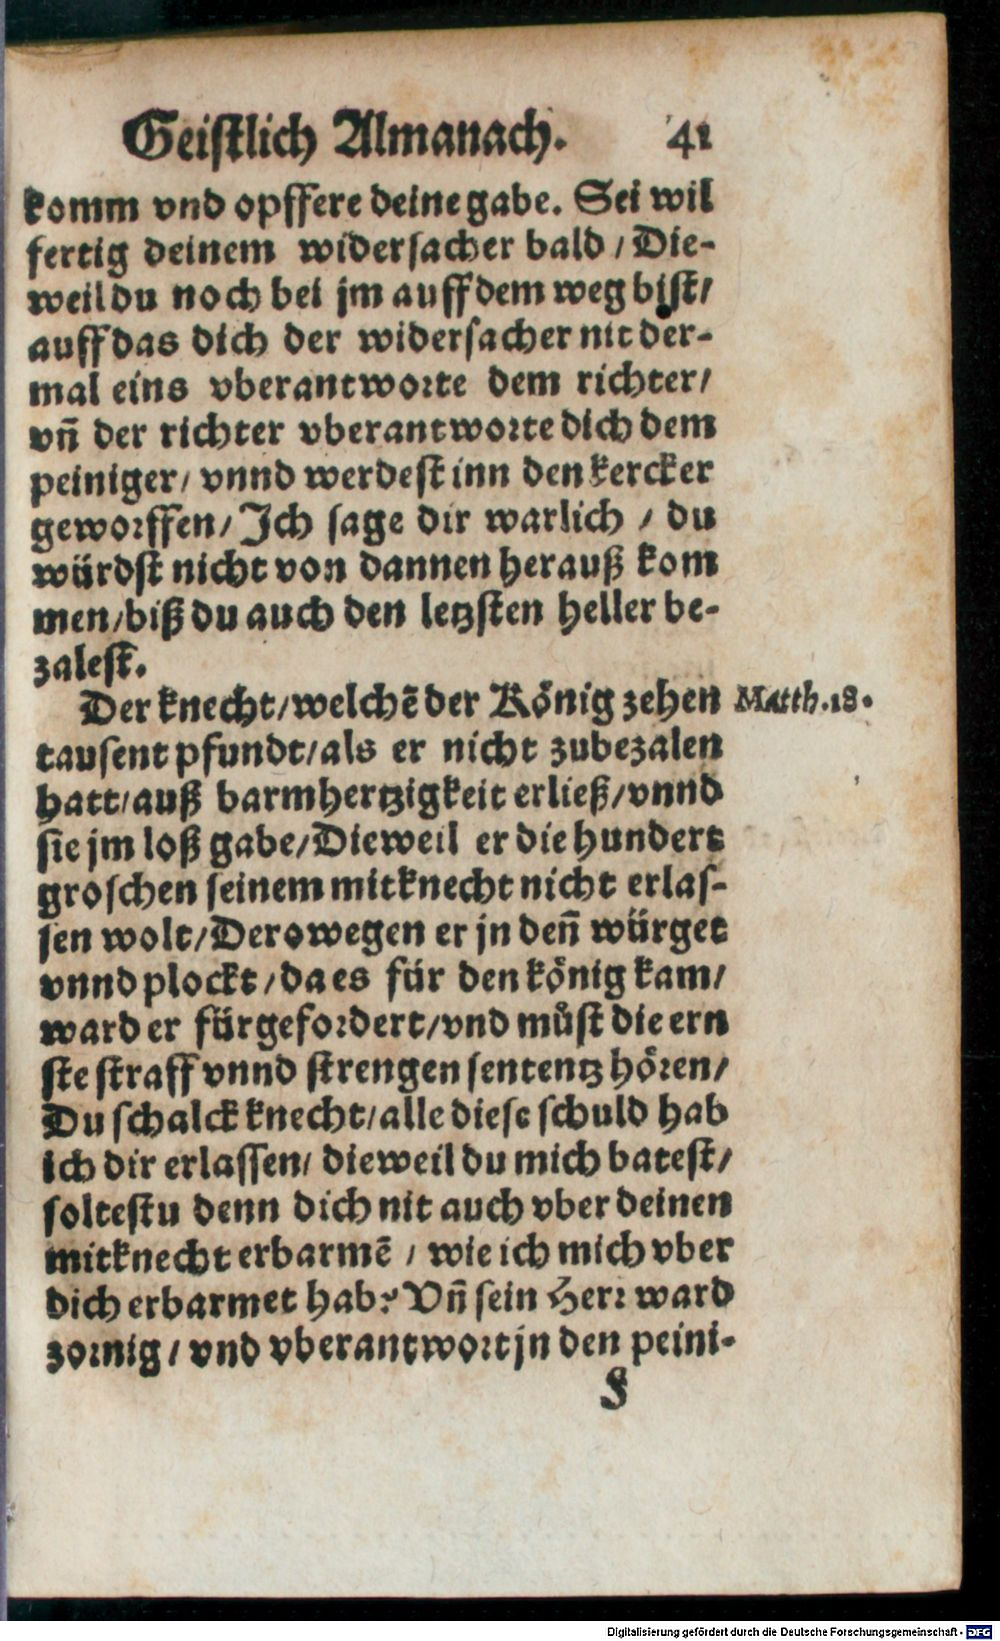 Geistlich Almanach. 41
komm vnd opffere deine gabe. Sei wil
fertig deinem widersacher bald / Die-
weil du noch bei jm auff dem weg bist/
auff das dich der widersacher nit der-
mal eins vberantworte dem richter/
vn̄ der richter vberantworte dich dem
peiniger/ vnnd werdest inn den kercker
geworffen/ Ich sage dir warlich / du
würdst nicht von dannen herauß kom
men/biß du auch den letzsten heller be-
zalest.
Der knecht/welchē der König zehen Matth.18.
tausent pfundt/als er nicht zubezalen
hatt/auß barmhertzigkeit erließ/vnnd
sie jm loß gabe/Dieweil er die hundert
groschen seinem mitknecht nicht erlas-
sen wolt/Derowegen er jn den̄ würget
vnnd plockt/da es für den könig kam/
ward er fürgefordert/vnd můst die ern
ste straff vnnd strengen sententz hören/
Du schalck knecht/alle diese schuld hab
ich dir erlassen/ dieweil du mich batest/
soltestu denn dich nit auch vber deinen
mitknecht erbarmē / wie ich mich vber
dich erbarmet hab? Vn̄ sein Herr ward
zornig / vnd vberantwort jn den peini-
F
Digitalisierung gefördert durch die Deutsche Forschungsgemeinschaft - DFG